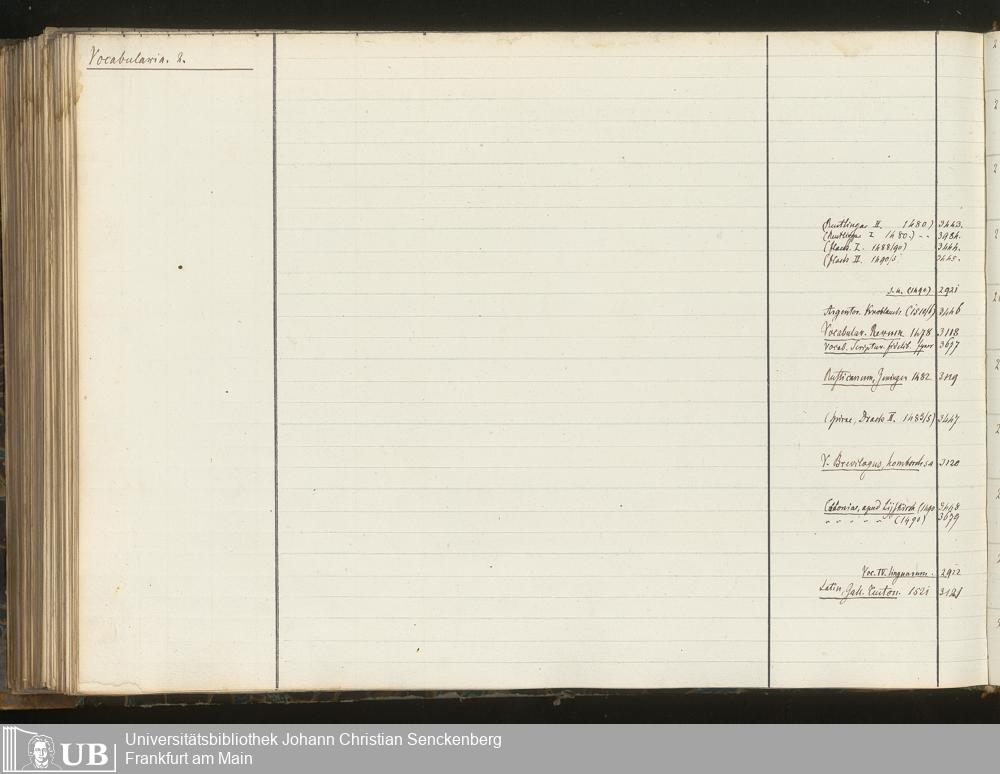 Vocabularia. 2.
(Reutlingae II. 1480) 3443.
(Reutlingae I. 1480.) -- 3984.
I. 1488/90) 3444.
II. 1490/5 3445.
s.a. (1490) 2921
Argentor. Knoblauch (1510/6) 3446
Vocabular. Rerum 1478 3118
Vocab. Scriptur. 3677
Rusticanum, Zeninger 1482 3119
(Spirae, Drach II. 1483/5) 3447
V. Breviloqus, s a 3120
Coloniae, apud Lijskirch (1490 3448
" " " " " (1490) 3679
Voc. IV. linguarum. 2922
Latin, Gall. Teuton. 1521 3121
UB
Universitätsbibliothek Johann Christian Senckenberg
Frankfurt am Main